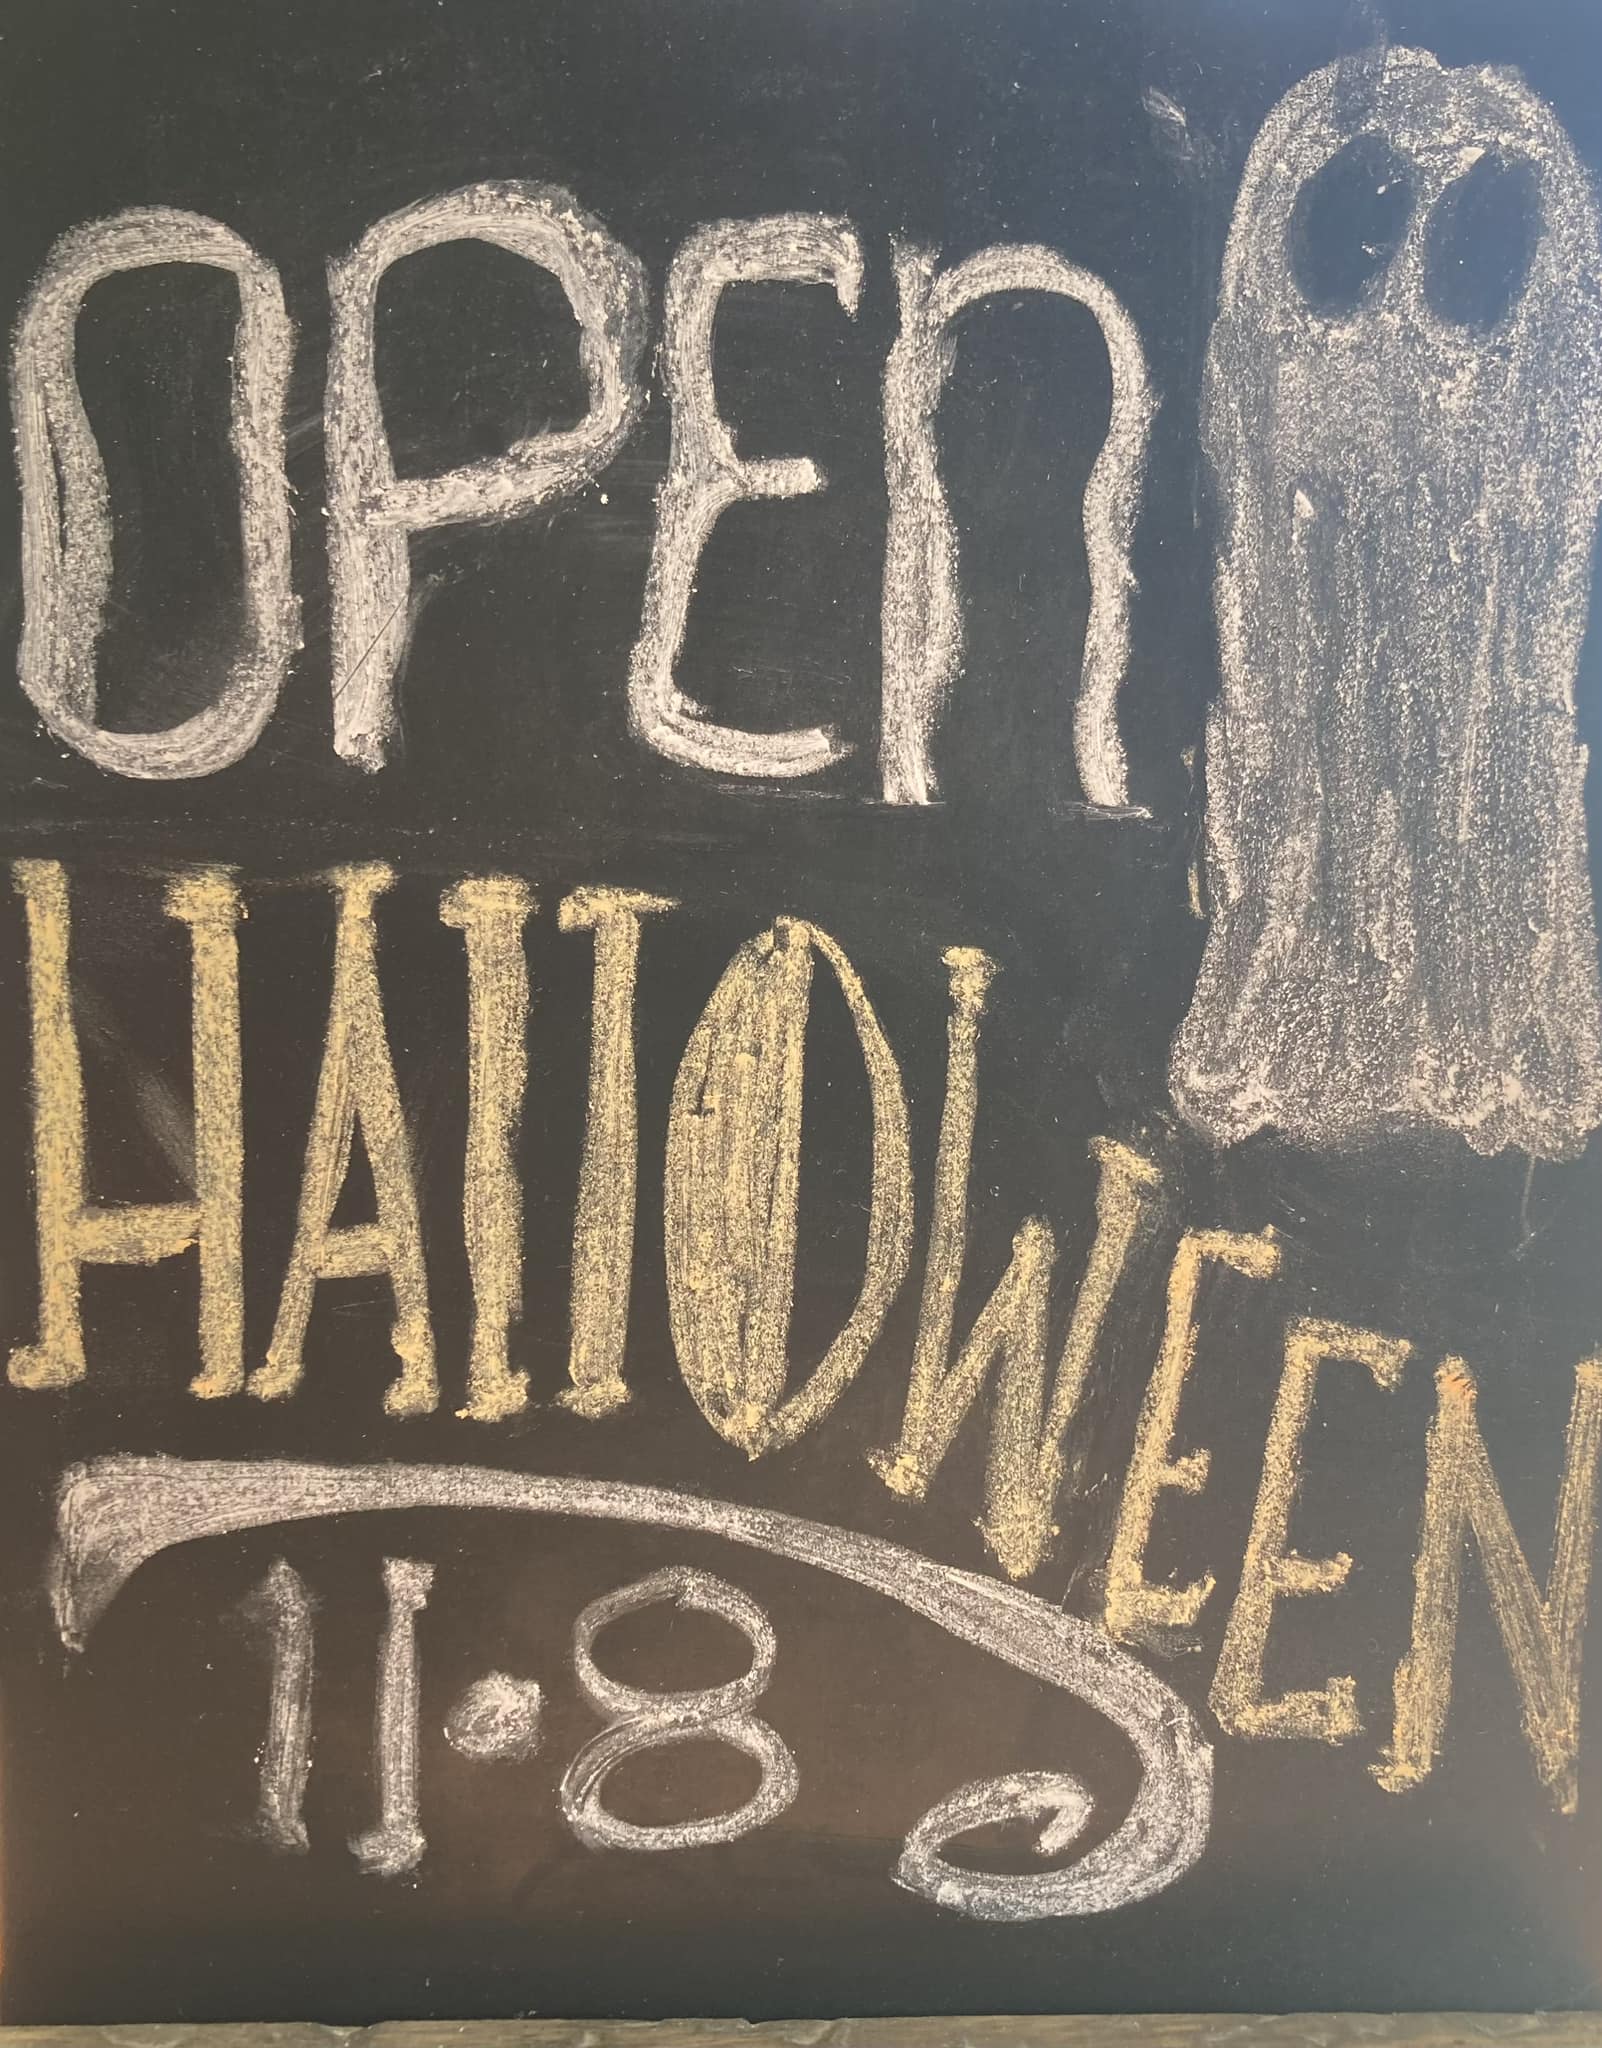 OPEN
HALLOWEEN
11·8